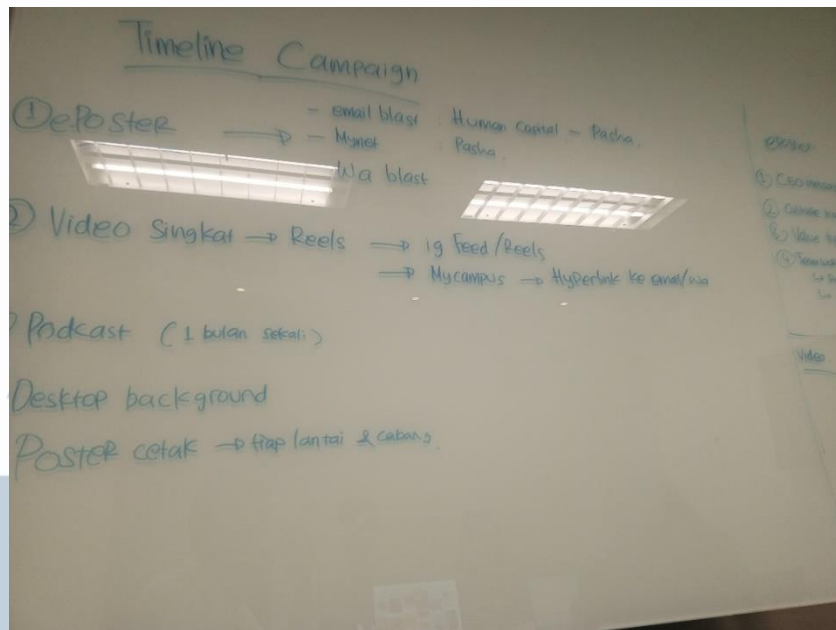 Timeline Campaign
① ePoster → - email blast : Human Capital - Pasha.
- Mynet : Pasha.
Wa blast
2) Video Singkat → Reels → ig Feed/Reels
→ Mycampus → Hyperlink ke email/wa
Podcast (1 bulan sekali)
Desktop background
Poster cetak → tiap lantai & cabang.
① CEO
②
③ Value
④
Video